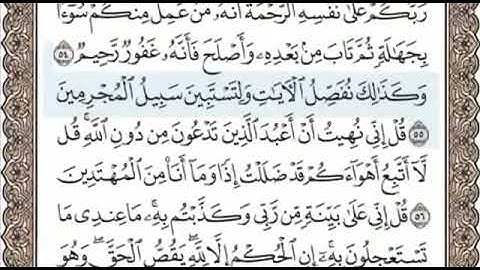 رَبُّكُمْ عَلَىٰ نَفْسِهِ ٱلرَّحْمَةَ أَنَّهُۥ مَنْ عَمِلَ مِنكُمْ سُوٓءًۢا
بِجَهَٰلَةٍ ثُمَّ تَابَ مِنۢ بَعْدِهِۦ وَأَصْلَحَ فَأَنَّهُۥ غَفُورٌ رَّحِيمٌ ٥٤
وَكَذَٰلِكَ نُفَصِّلُ ٱلْأَيَٰتِ وَلِتَسْتَبِينَ سَبِيلُ ٱلْمُجْرِمِينَ
٥٥ قُلْ إِنِّى نُهِيتُ أَنْ أَعْبُدَ ٱلَّذِينَ تَدْعُونَ مِن دُونِ ٱللَّهِ ۚ قُل
لَّآ أَتَّبِعُ أَهْوَآءَكُمْ ۙ قَدْ ضَلَلْتُ إِذًا وَمَآ أَنَا۠ مِنَ ٱلْمُهْتَدِينَ
٥٦ قُلْ إِنِّى عَلَىٰ بَيِّنَةٍ مِّن رَّبِّى وَكَذَّبْتُم بِهِۦ ۚ مَا عِندِى مَا
تَسْتَعْجِلُونَ بِهِۦٓ ۚ إِنِ ٱلْحُكْمُ إِلَّا لِلَّهِ ۖ يَقُصُّ ٱلْحَقَّ ۖ وَهُوَ